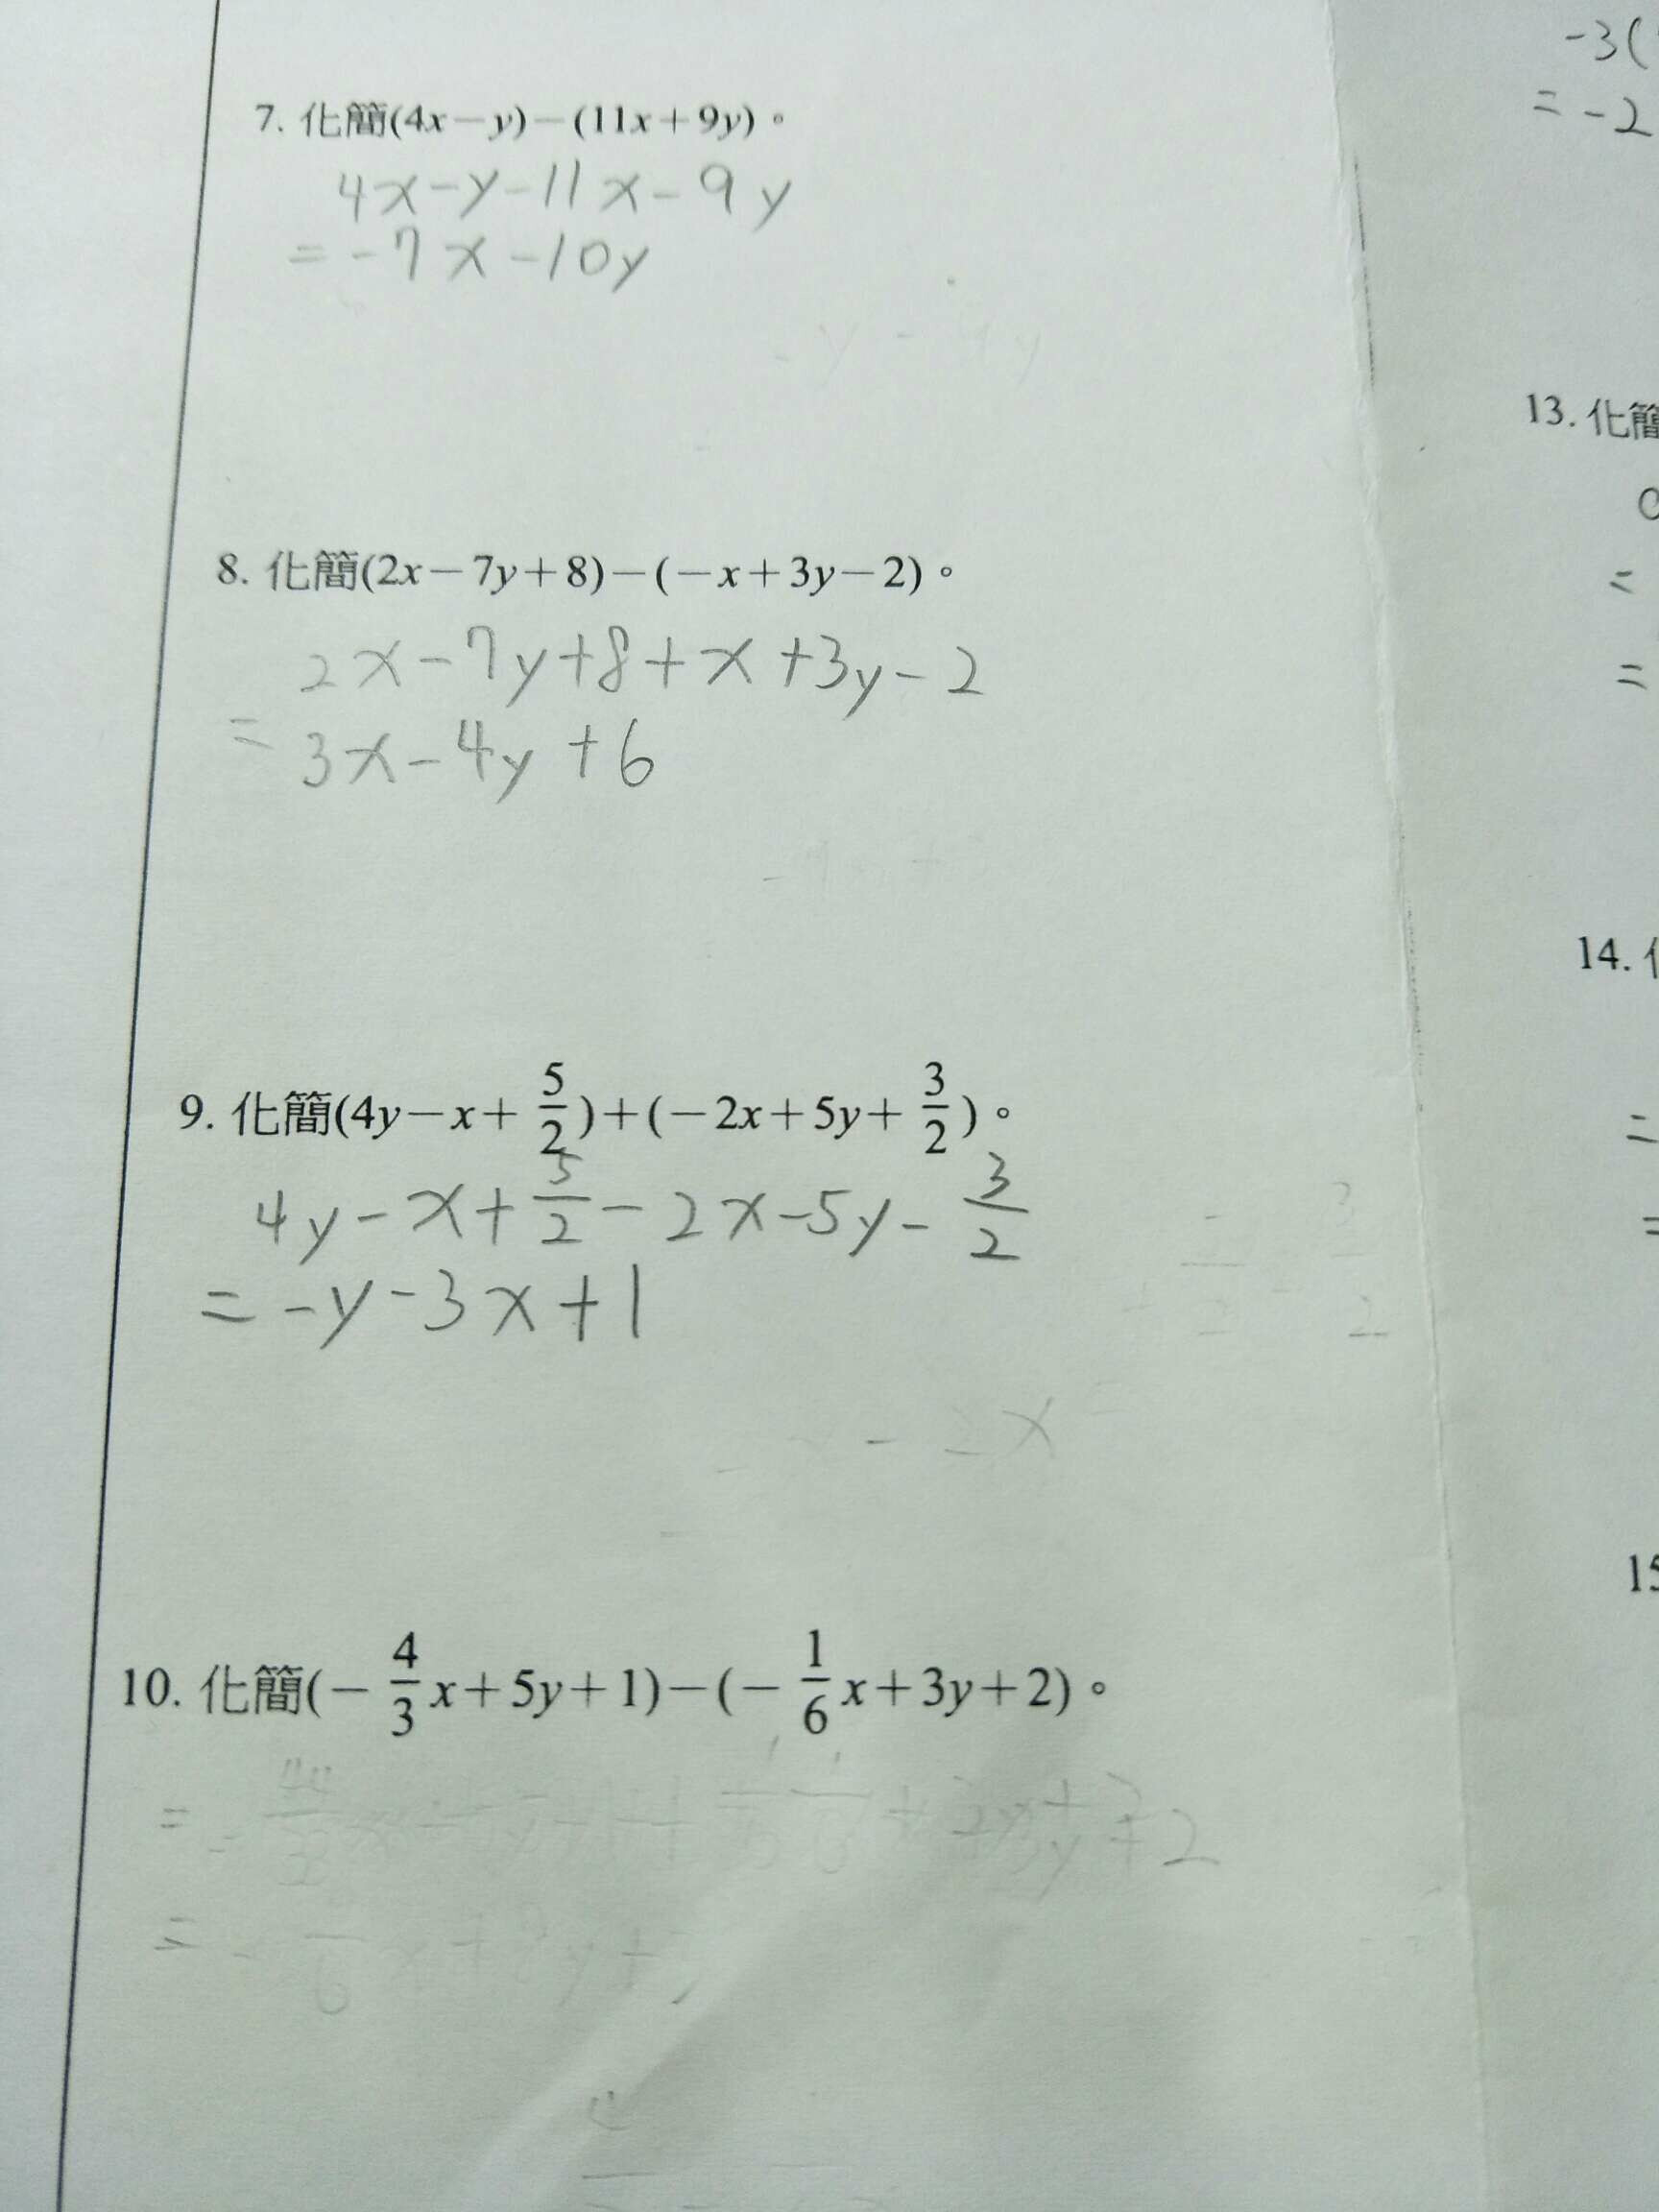 7. 化簡(4x－y)－(11x＋9y)。
4x-y-11x-9y
=-7x-10y
8. 化簡(2x－7y＋8)－(－x＋3y－2)。
2x-7y+8+x+3y-2
= 3x-4y+6
9. 化簡(4y－x＋5/2)＋(－2x＋5y＋3/2)。
4y-x+5/2-2x-5y-3/2
=-y-3x+1
10. 化簡(－4/3x＋5y＋1)－(－1/6x＋3y＋2)。
-3(
=-2
13. 化簡
=
=
14.
=
=
15